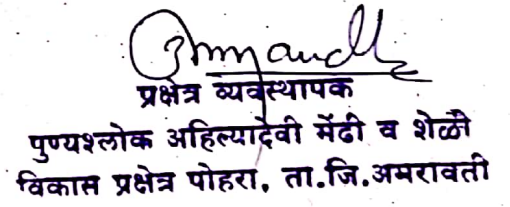 प्रक्षेत्र व्यवस्थापक
पुण्यश्लोक अहिल्यादेवी मेंढी व शेळी
विकास प्रक्षेत्र पोहरा, ता.जि.अमरावती